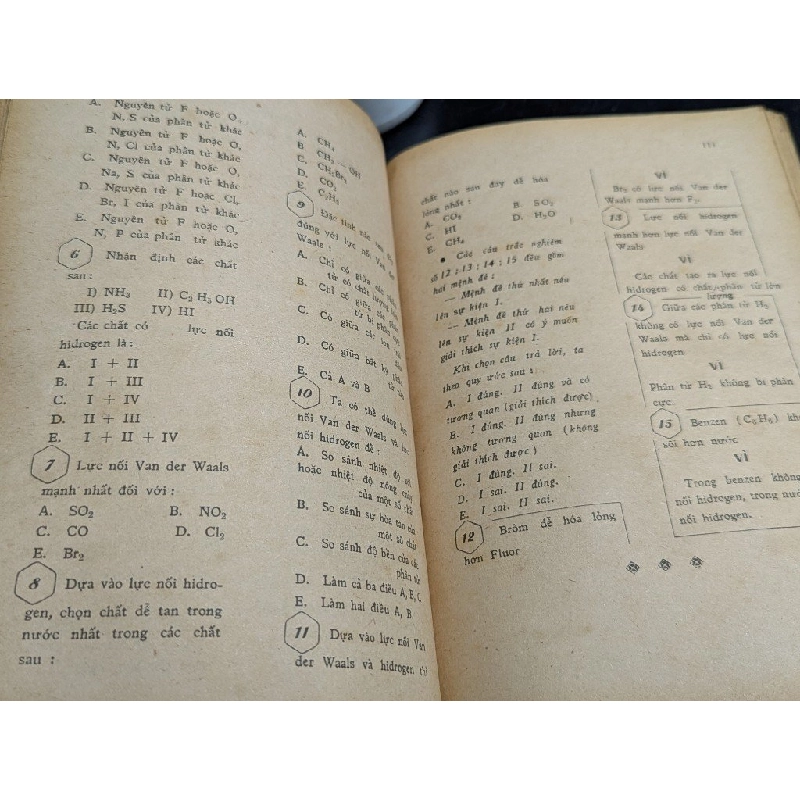 A. Nguyên tử F hoặc O,
N, S của phân tử khác
B. Nguyên tử F hoặc O,
N, Cl của phân tử khác
C. Nguyên tử F hoặc O,
Na, S của phân tử khác
D. Nguyên tử F hoặc Cl,
Br, I của phân tử khác
E. Nguyên tử F hoặc O,
N, P của phân tử khác
6 Nhận định các chất
sau :
I) NH3 II) C2H5OH
III) H2S IV) HI
Các chất có lực nối
hidrogen là :
A. I + II
B. I + III
C. I + IV
D. II + III
E. I + II + IV
7 Lực nối Van der Waals
mạnh nhất đối với :
A. SO2 B. NO2
C. CO D. Cl2
E. Br2
8 Dựa vào lực nối hidro-
gen, chọn chất dễ tan trong
nước nhất trong các chất
sau :
A. CH4
B. CH3 — OH
C. CH3Br
D. CO2
E.
9 Đặc tính nào
đúng với lực nối Van der
Waals :
A. Chỉ có giữa các
tử có chứa
B. Chỉ có giữa
tử bị phân
C. Có giữa các
D. Có giữa bất kỳ
E. Cả A và B
10 Ta có thể dùng lực
nối Van der Waals và lực
nối hidrogen để :
A. So sánh nhiệt độ sôi,
hoặc nhiệt độ nóng chảy
của một số chất
B. So sánh sự hòa tan của
một số chất
C. So sánh độ bền của các
phân tử
D. Làm cả ba điều A, B, C
E. Làm hai điều A, B
11 Dựa vào lực nối Van
der Waals và hidrogen thì
chất nào sau đây dễ hóa
lỏng nhất :
A. CO2 B. SO2
C. HI D. H2O
E. CH4
• Các câu trắc nghiệm
số 12 ; 13 ; 14 ; 15 đều gồm
hai mệnh đề :
— Mệnh đề thứ nhất nêu
lên sự kiện I.
— Mệnh đề thứ hai nêu
lên sự kiện II có ý muốn
giải thích sự kiện I.
Khi chọn câu trả lời, ta
theo quy ước sau :
A. I đúng, II đúng và có
tương quan (giải thích được)
B. I đúng II đúng nhưng
không tương quan (không
giải thích được)
C. I đúng, II sai.
D. I sai, II đúng.
E. I sai, II sai.
12 Brôm dễ hóa lỏng
hơn Fluor
VÌ
Br2 có lực nối Van der
Waals mạnh hơn F2.
13 Lực nối hidrogen
mạnh hơn lực nối Van der
Waals
VÌ
Các chất tạo ra lực nối
hidrogen có phân tử lớn
lượng
14 Giữa các phân tử H2
không có lực nối Van der
Waals mà chỉ có lực nối
hidrogen
VÌ
Phân tử H2 không bị phân
cực.
15 Benzen (C6H6)
sôi hơn nước
VÌ
Trong benzen không
nối hidrogen, trong nước
nối hidrogen.